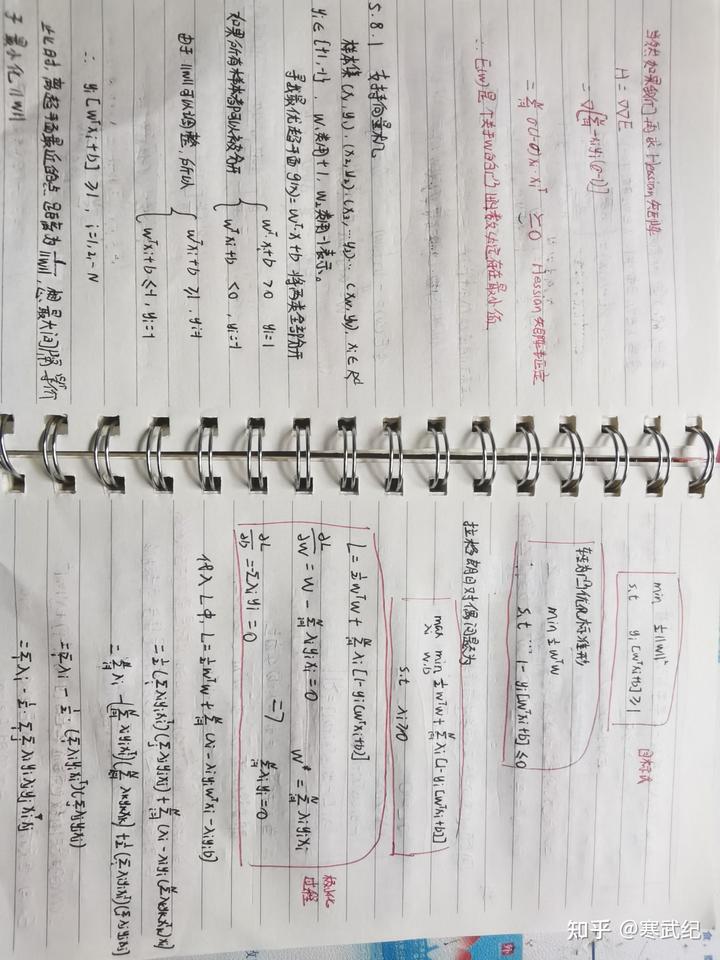 当然如果我们再求Hessian矩阵
H = ∇∇E
= ∇[∑_{i=1}^{N} -x_i y_i (σ-1)]
= ∑_{i=1}^{N} σ(1-σ) x_i · x_i^T ≥ 0 Hessian矩阵半正定
∴ E(w)是个关于w的凸函数,一定存在最小值
5.8.1 支持向量机
样本集 (x_1, y_1), (x_2, y_2), (x_3, … y_3) … (x_N, y_N), x_i ∈ R^d
y_i ∈ {+1, -1}, w_1类用+1, w_2类用-1表示。
寻找最优超平面 g(x) = w^T·x+b 将两类全部分开
w^T·x_i+b >0 y_i=1
如果所有样本都可以被分开
w^T x_i+b <0, y_i=-1
w^T x_i+b ≥1, y_i=1
由于||w||可以调整,所以
w^T x_i+b ≤-1, y_i=-1
∴ y_i [w^T x_i+b] ≥1, i=1,2,…N
此时,离超平面最近的点距离为 1/||w||, 想最大间隔等价
于最小化||w||
min ½||w||²
s.t y_i [w^T x_i+b] ≥1
目标式
转为凸优化标准形
min ½ w^T w
s.t … 1- y_i[w^T x_i+b] ≤0
拉格朗日对偶问题为
max_{λ_i} min_{w,b} ½ w^T w + ∑_{i=1}^{N} λ_i [1-y_i(w^T x_i+b)]
s.t λ_i≥0
L = ½ w^T w + ∑_{i=1}^{N} λ_i [1-y_i(w^T x_i+b)]
∂L/∂w = w - ∑_{i=1}^{N} λ_i y_i x_i = 0 w* = ∑_{i=1}^{N} λ_i y_i x_i
=>
∂L/∂b = -∑λ_i y_i = 0 ∑_{i=1}^{N} λ_i y_i = 0
极小化
过程
代入L中, L = ½ w^T w + ∑_{i=1}^{N} (λ_i - λ_i y_i w^T x_i - λ_i y_i b)
= ½ (∑_i λ_i y_i x_i^T)(∑_j λ_j y_j x_j) + ∑_{i=1}^{N} (λ_i - λ_i y_i (∑_{k}^{N} λ_k y_k x_k^T) x_i)
= ∑_{i=1}^{N} λ_i - (∑_{i=1}^{N} λ_i y_i x_i^T)(∑_{k=1}^{N} λ_k y_k x_k) + ½ (∑_i λ_i y_i x_i^T)(∑_j λ_j y_j x_j)
= ∑_i λ_i - ½ · (∑_i λ_i y_i x_i^T)(∑_j λ_j y_j x_j)
= ∑_i λ_i - ½ · ∑_i ∑_j λ_i y_i λ_j y_j x_i^T x_j
知乎 @寒武纪